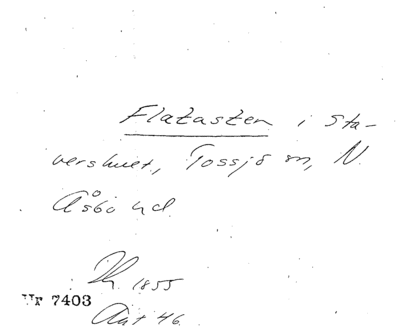 Flatasten i Sta-
vershult, Tossjö sn, N.
Åsbo hd.
1855
Nr 7403
Ant 46.